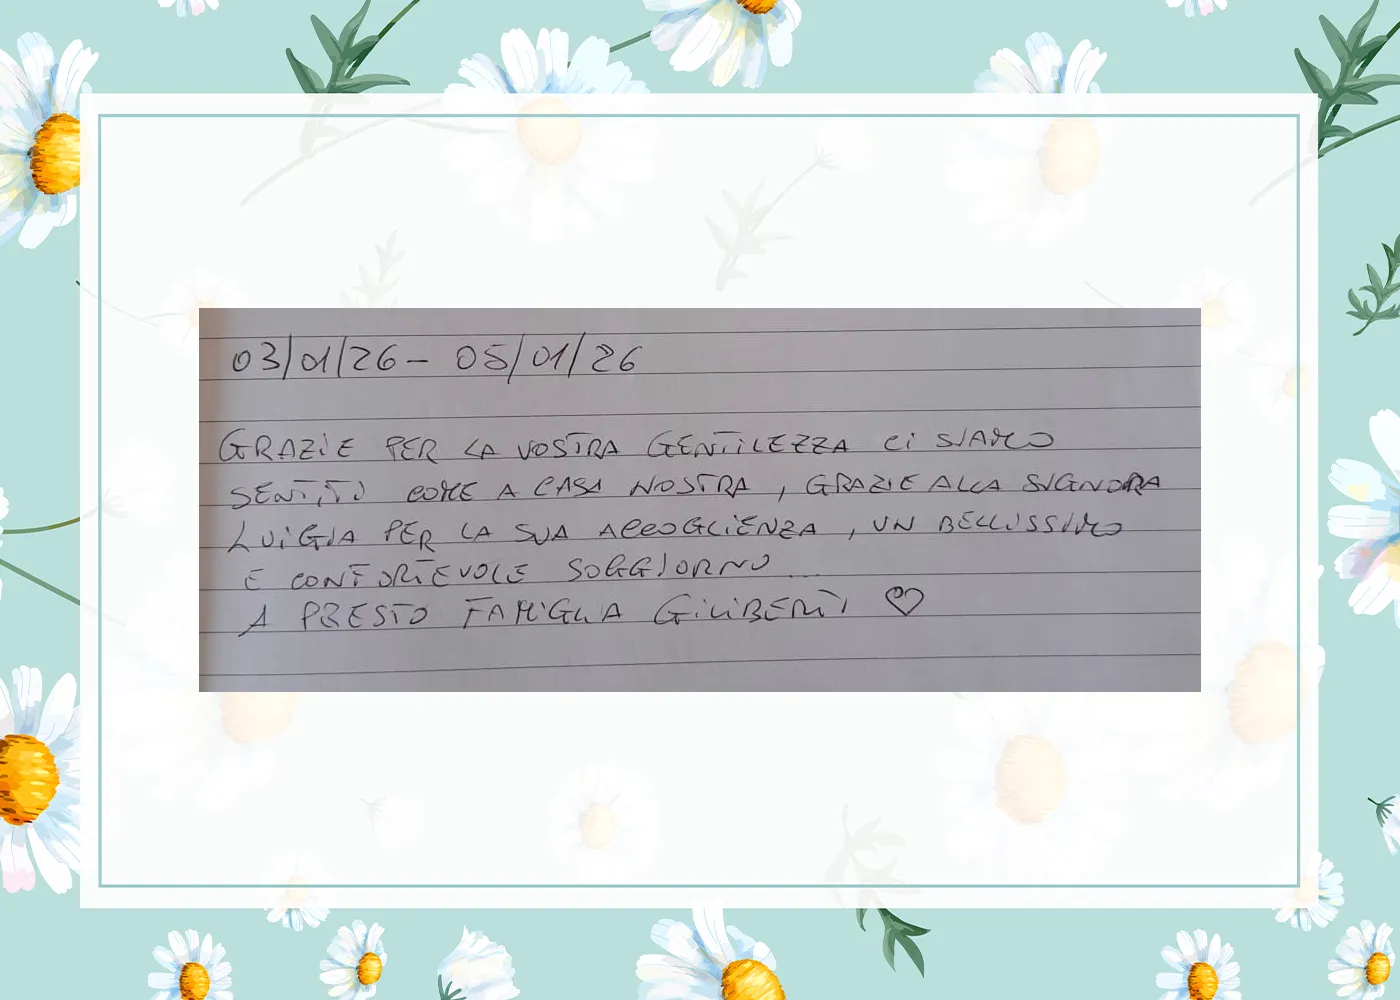 03/01/26 - 05/01/26
GRAZIE PER LA VOSTRA GENTILEZZA CI SIAMO
SENTITI COME A CASA NOSTRA, GRAZIE ALLA SIGNORA
LUIGIA PER LA SUA ACCOGLIENZA, UN BELLISSIMO
E CONFORTEVOLE SOGGIORNO...
A PRESTO FAMIGLIA GILIBERTI ♡